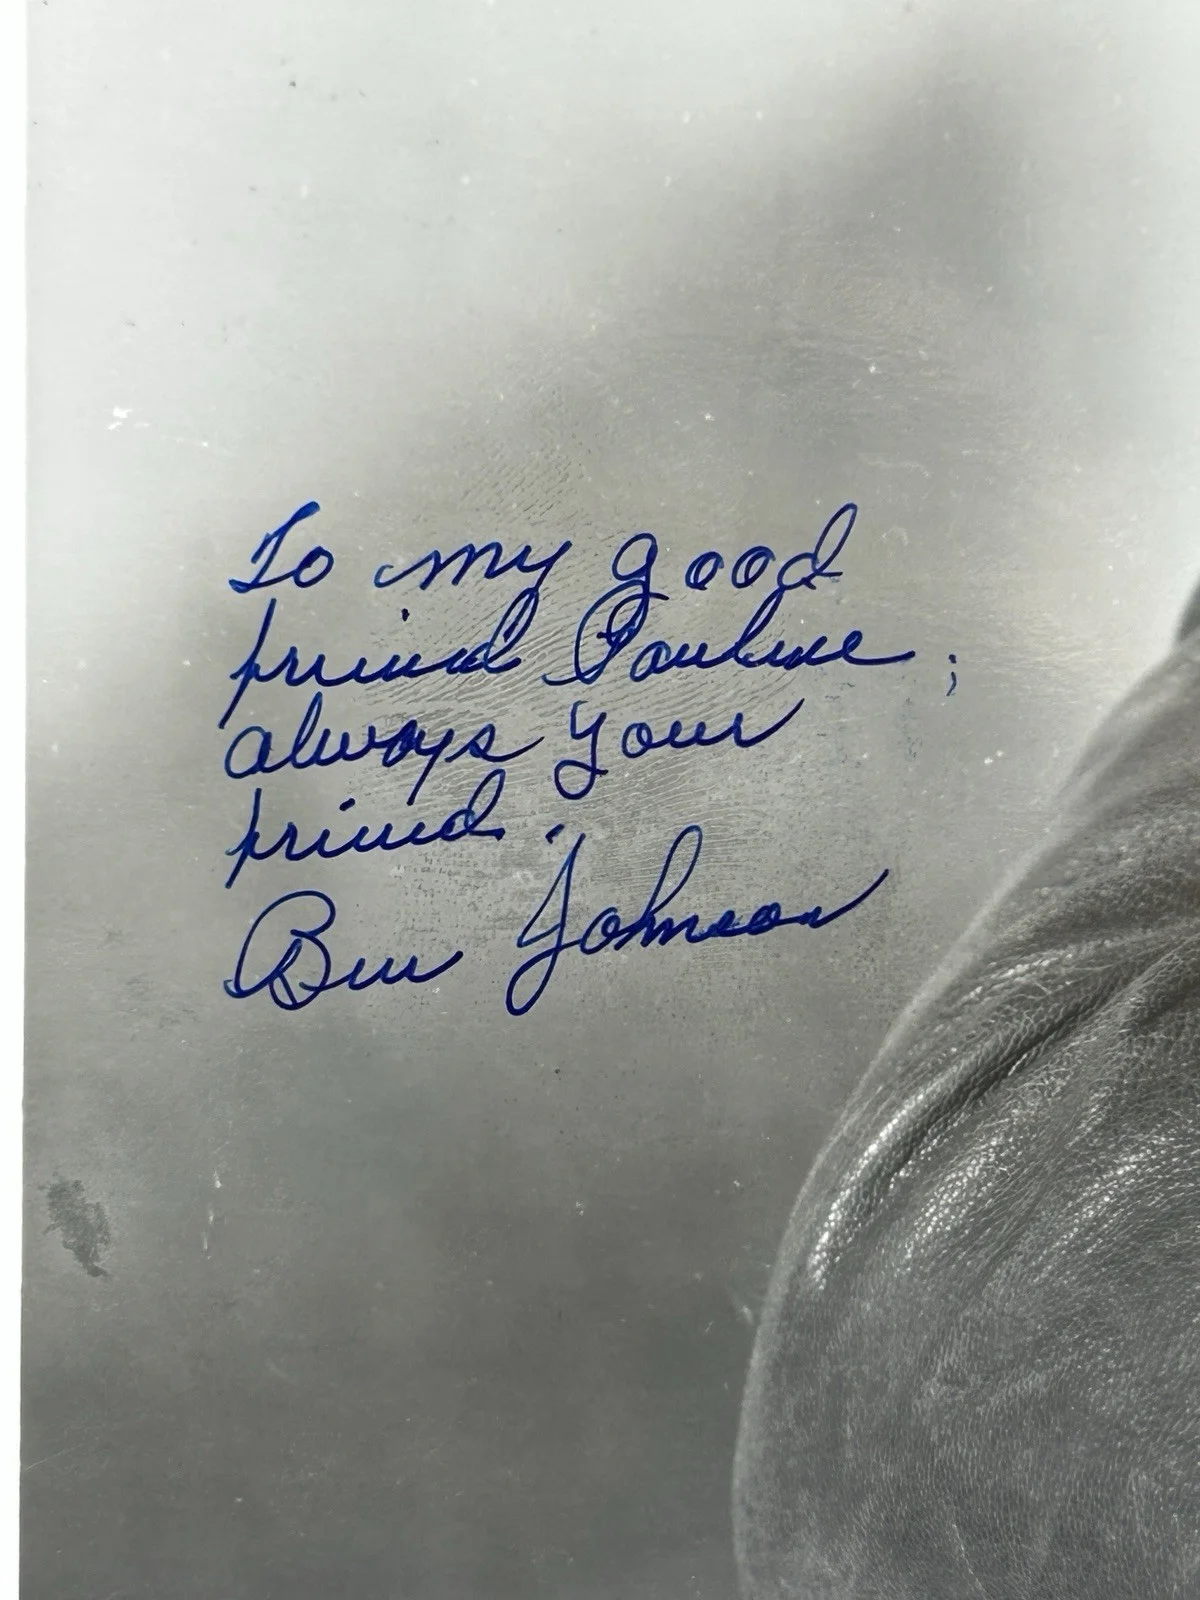 To my good
friend Pauline,
always your
friend.
Ben Johnson